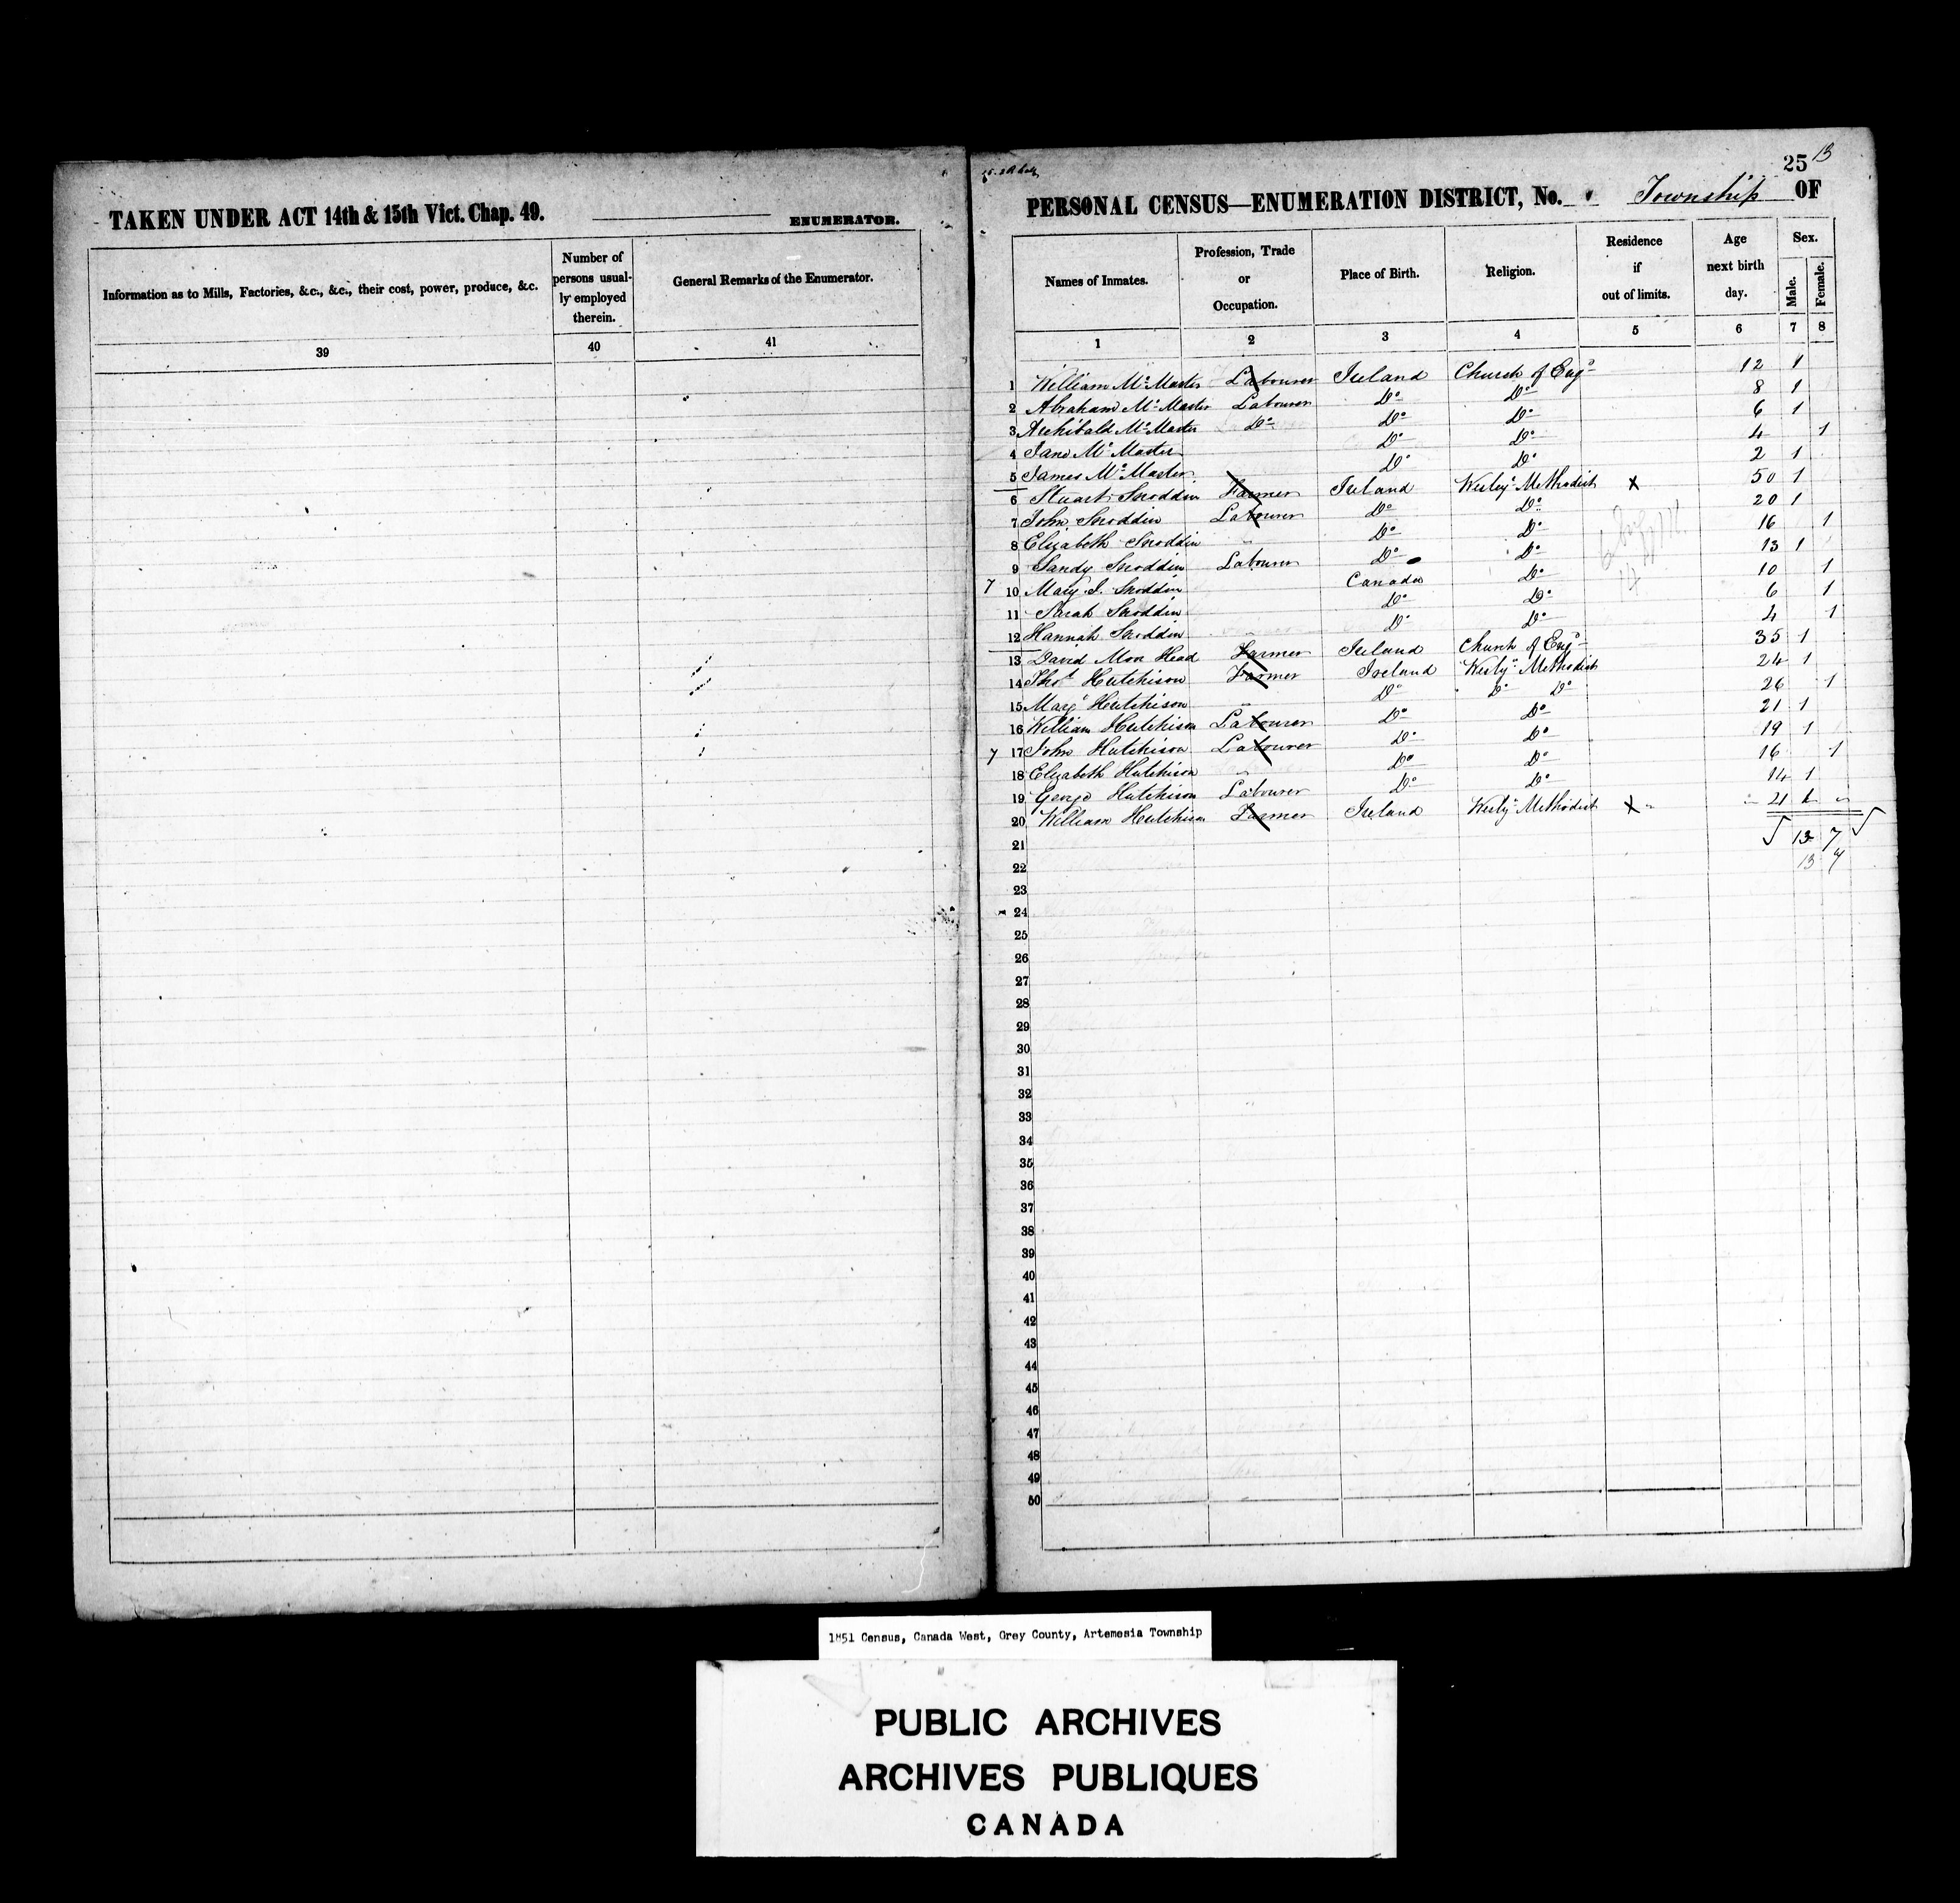 TAKEN UNDER ACT 14th & 15th Vict. Chap. 49. ENUMERATOR.
Information as to Mills, Factories, &c., &c., their cost, power, produce, &c.
Number of persons usually employed therein.
General Remarks of the Enumerator.
39 40 41
25 13
PERSONAL CENSUS—ENUMERATION DISTRICT, No. Township OF
Names of Inmates.
Profession, Trade or Occupation.
Place of Birth.
Religion.
Residence if out of limits.
Age next birth day.
Sex.
Male. Female.
1 2 3 4 5 6 7 8
1 William Mc Master Labourer Ireland Church of Engd 12 1
2 Abraham Mc Master Labourer Do Do 8 1
3 Archibald Mc Master Do Do Do 6 1
4 Jane Mc Master Do Do 4 1
5 James Mc Master Do Do 2 1
6 Stuart Snoddin Farmer Ireland Wesly Methodist X 50 1
7 John Snoddin Labourer Do Do 20 1
8 Elizabeth Snoddin Do Do 16 1
9 Sandy Snoddin Labourer Do Do 13 1
7 10 Mary J. Snoddin Canada Do 10 1
11 Sarah Snoddin Do Do 6 1
12 Hannah Snoddin Do Do 4 1
13 David Moor Head Farmer Ireland Church of Engd 35 1
14 Thos Hutchison Farmer Ireland Wesly Methodist 24 1
15 Mary Hutchison Do Do Do 26 1
16 William Hutchison Labourer Do Do 21 1
7 17 John Hutchison Labourer Do Do 19 1
18 Elizabeth Hutchison Do Do 16 1
19 George Hutchison Labourer Do Do 14 1
20 William Hutchison Farmer Ireland Wesly Methodist X 21 1
21 13 7
22 13 7
23
24
25
26
27
28
29
30
31
32
33
34
35
36
37
38
39
40
41
42
43
44
45
46
47
48
49
50
1851 Census, Canada West, Grey County, Artemesia Township
PUBLIC ARCHIVES
ARCHIVES PUBLIQUES
CANADA